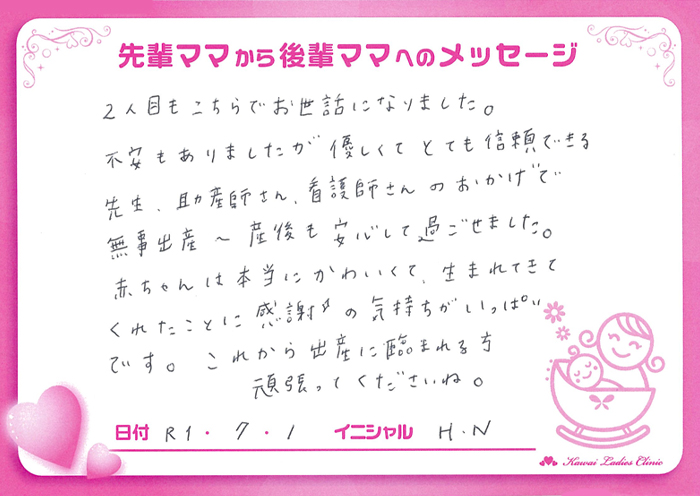 先輩ママから後輩ママへのメッセージ
2人目もこちらでお世話になりました。
不安もありましたが優しくてとても信頼できる
先生、助産師さん、看護師さんのおかげで
無事出産〜産後も安心して過ごせました。
赤ちゃんは本当にかわいくて、生まれてきて
くれたことに感謝の気持ちがいっぱい
です。これから出産に臨まれる方
頑張ってくださいね。
日付 R1・7・1 イニシャル H.N
Kawai Ladies Clinic